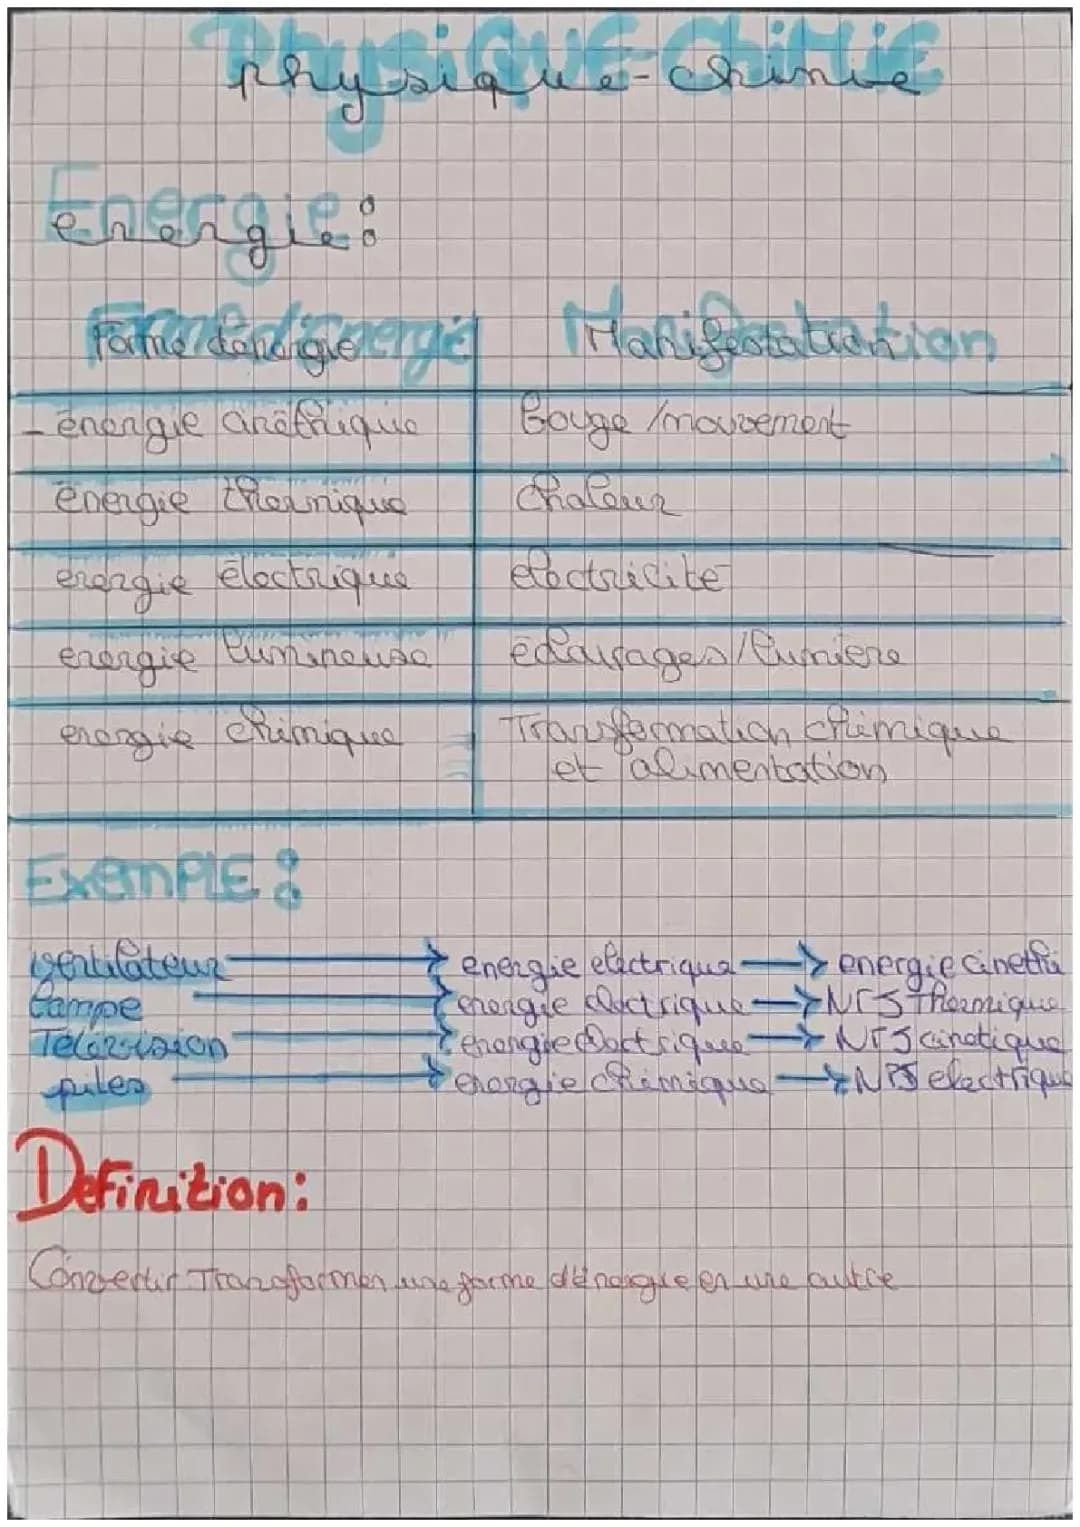 Physique-Chimie
physique-chimie
Energie:
energie:
Forme d'énergie Manifestation
- énergie cinétique bouge /mouvement
énergie thermique chaleur
energie électrique electricité
energie lumineuse éclairages/lumiere
energie chimique Transformation chimique
et alimentation
EXEMPLE:
ventilateur energie electrique energie cinethi
lampe energie electrique NRJ thermique
Télévision energie electrique NRJ cinetique
piles energie chimique NRJ electrique
Definition:
Convertir Transformer une forme d'énergie en une autre